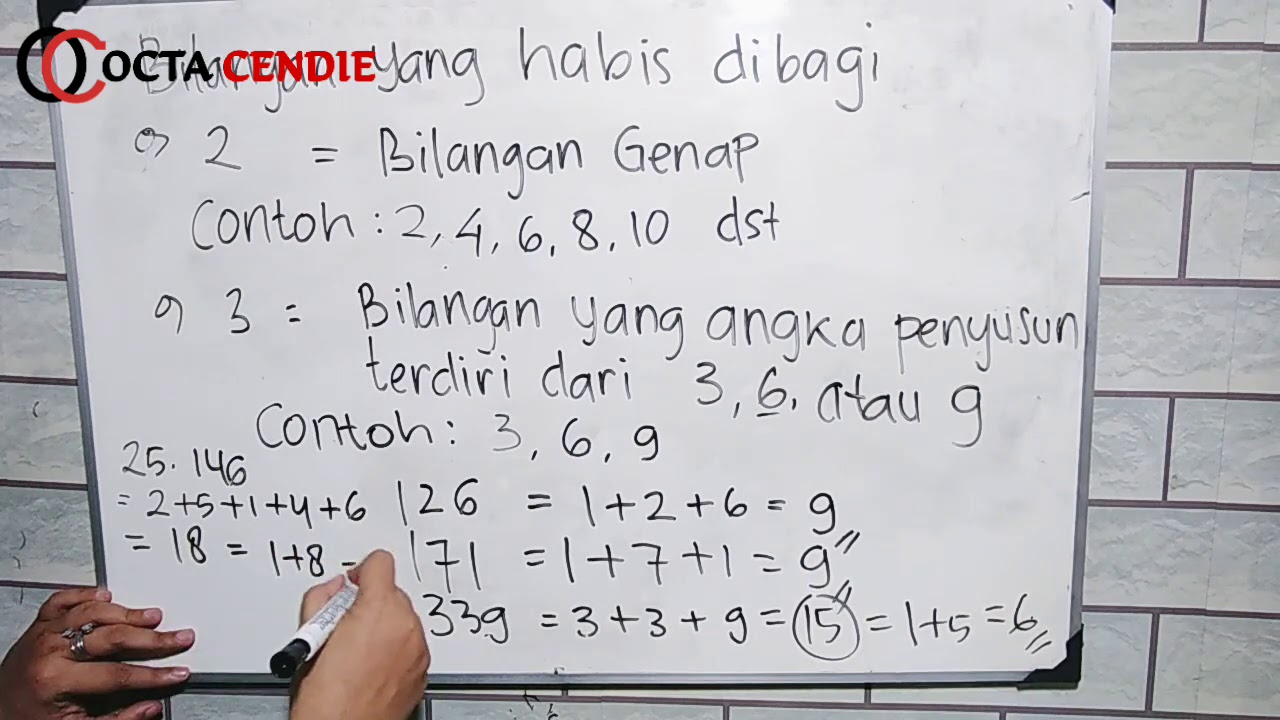 OCTA CENDIE
Bilangan yang habis dibagi
2 = Bilangan Genap
Contoh : 2, 4, 6, 8, 10 dst
3 = Bilangan yang angka penyusun
terdiri dari 3, 6, atau 9
Contoh : 3, 6, 9
25.146
= 2+5+1+4+6
= 18 = 1+8 =
126 = 1+2+6 = 9
171 = 1+7+1 = 9
339 = 3+3+9 = 15 = 1+5 = 6